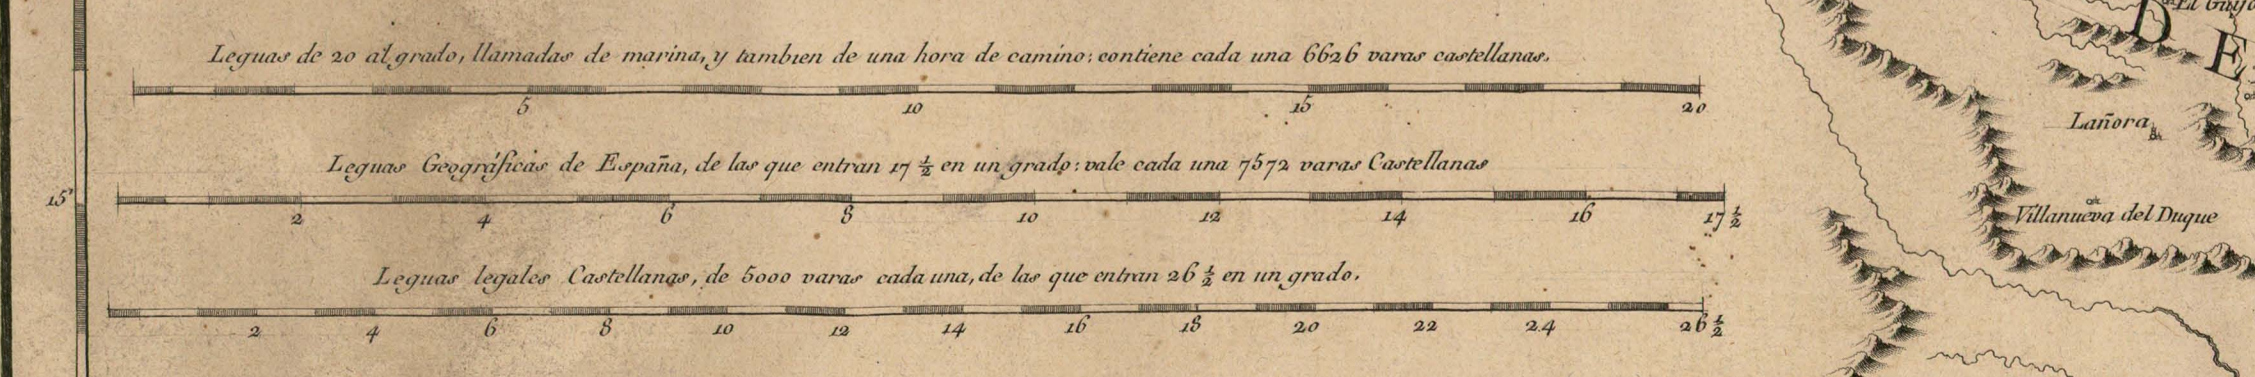 Leguas de 20 al grado, llamadas de marina, y tambien de una hora de camino: contiene cada una 6626 varas castellanas.
5 10 15 20
Leguas Geográficas de España, de las que entran 17 1/2 en un grado: vale cada una 7572 varas Castellanas
15'
2 4 6 8 10 12 14 16 17 1/2
Leguas legales Castellanas, de 5000 varas cada una, de las que entran 26 1/2 en un grado.
2 4 6 8 10 12 14 16 18 20 22 24 26 1/2
D E
Lañora
Villanueva del Duque